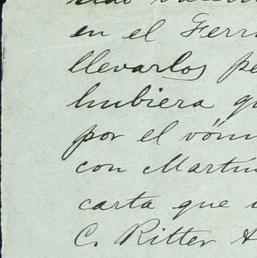 en el Ferr
llevarlos pe
hubiera qu
por el vóm
con Martín
carta que
C. Ritter A